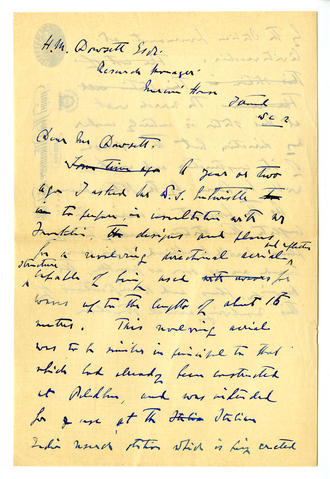 H. M. Dowsett Esqr.
Research Manager
Marconi House
Strand
W.C. 2
Dear Mr Dowsett.
Some time ago A year or two
ago I asked Mr W.S. Entwistle to
to prepare, in consultation with Mr
Franklin, the designs and plans
and reflector
for a revolving directional aerial
structure
capable of being used with waves for
waves up to the length of about 15
metres. This revolving aerial
was to be similar in principle to that
which had already been constructed
at Poldhu, and was intended
for use at the Italia Italian
Radio research station which is being erected